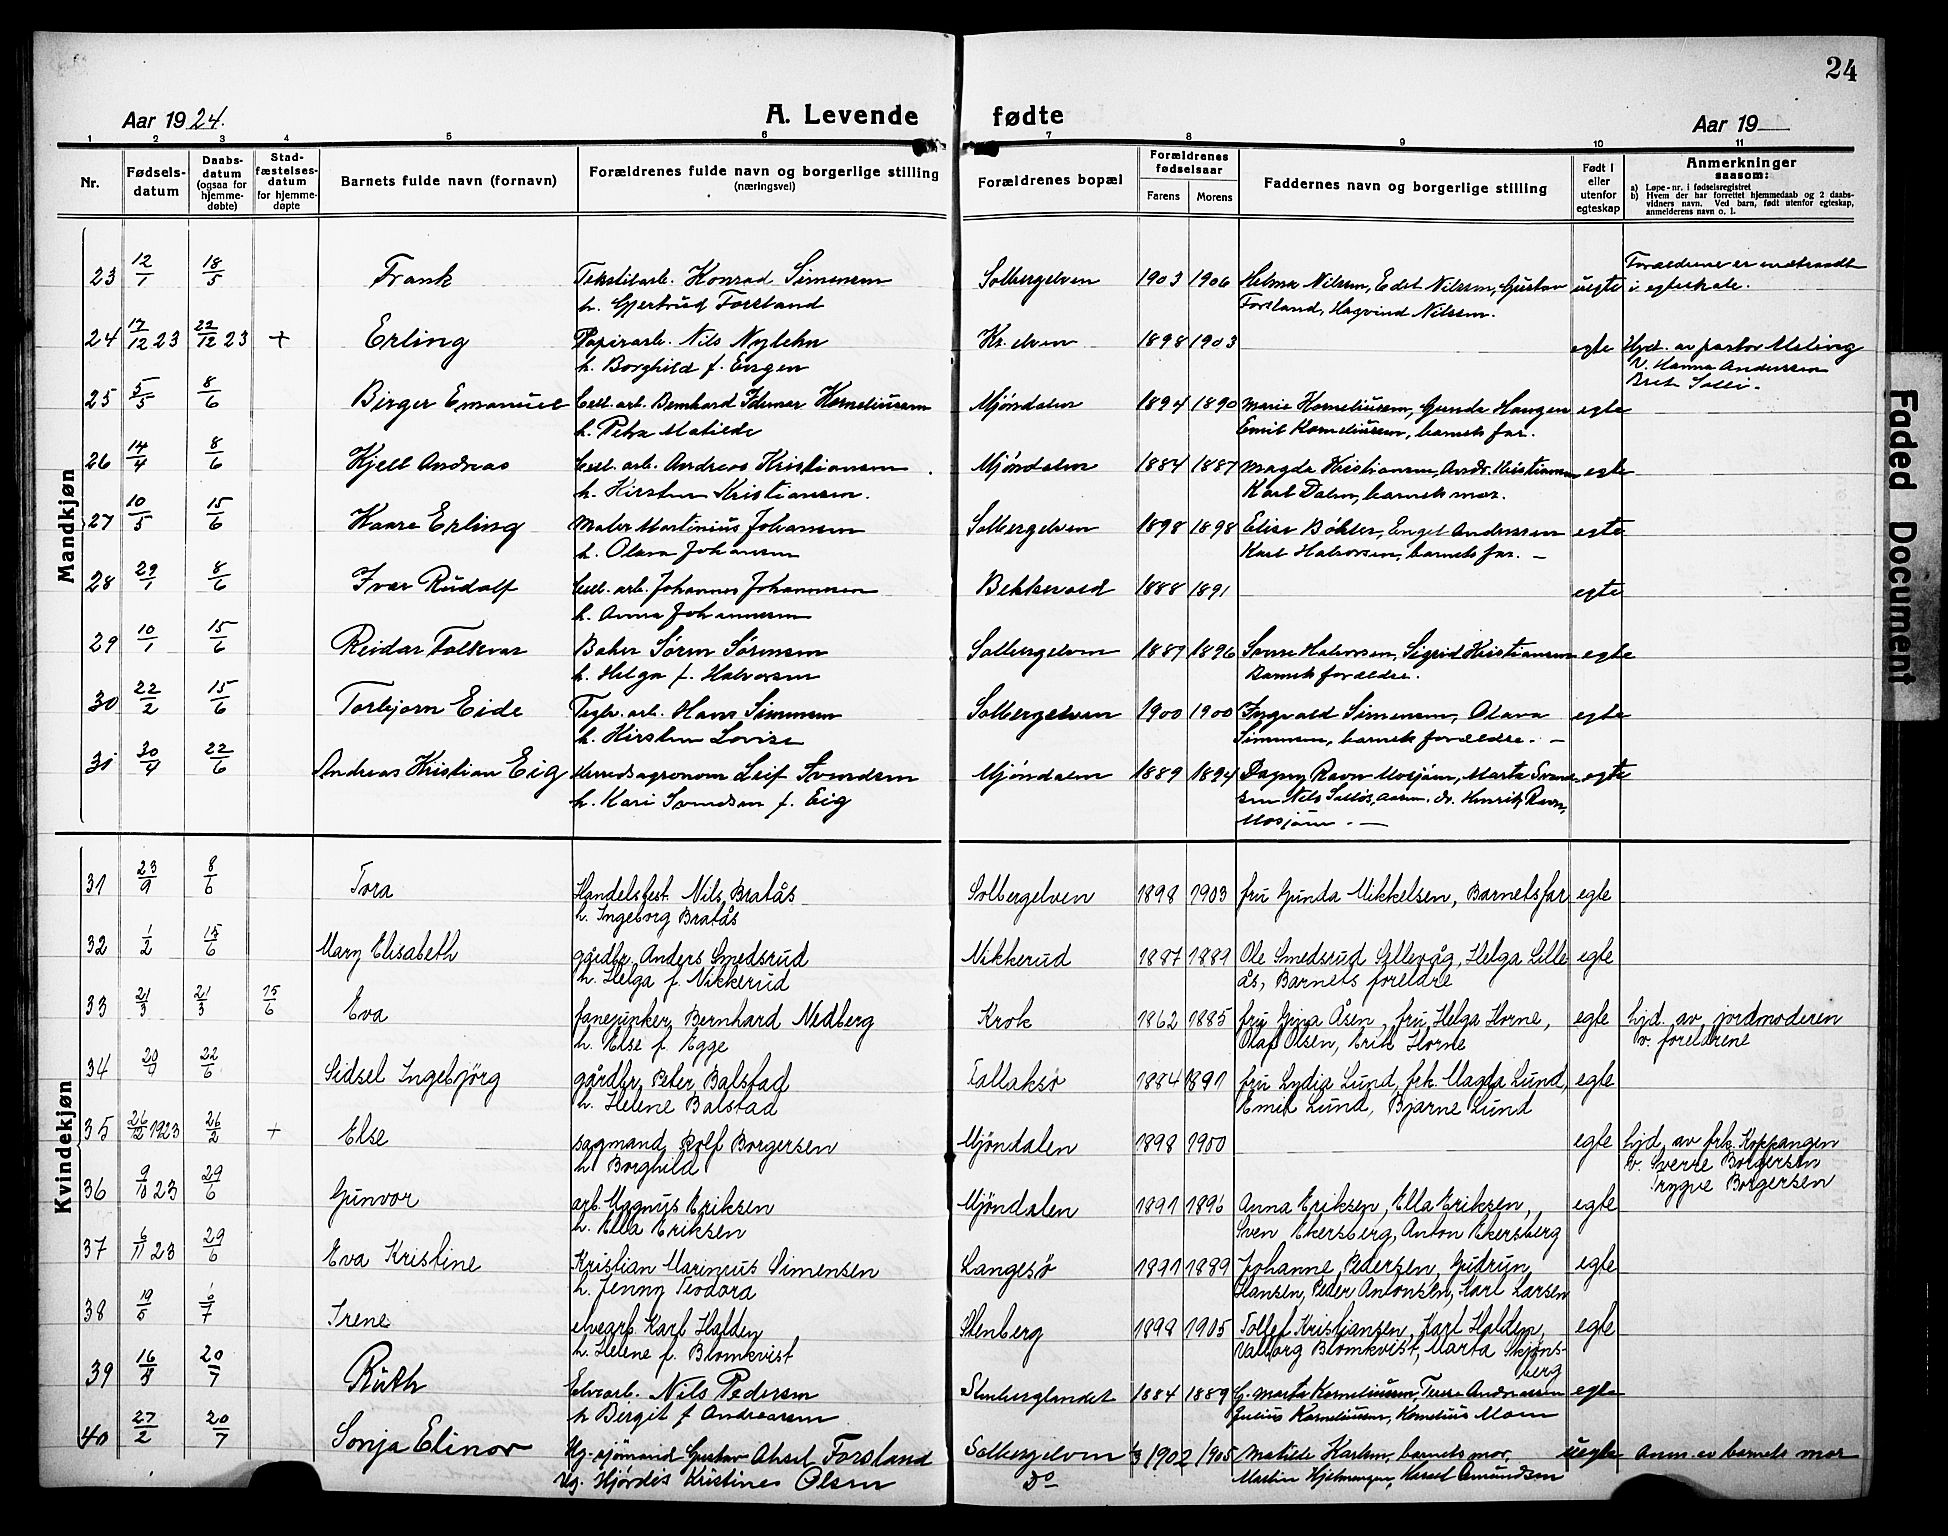 24
Aar 1924. A. Levende fødte Aar 19
1 2 3 4 5 6 7 8 9 10 11
Nr. Fødsels-datum Daabs-datum (ogsaa for hjemme-døbte) Stad-fæstelses-datum for hjemme-døpte Barnets fulde navn (fornavn) Forældrenes fulde navn og borgerlige stilling (næringsvei) Forældrenes bopæl Forældrenes fødselsaar Farens Morens Faddernes navn og borgerlige stilling Født i eller utenfor egteskap Anmerkninger saasom:
a) Løpe-nr. i fødselsregistret
b) Hvem der har forrettet hjemmedaab og 2 daabs-vidners navn. Ved barn, født utenfor egteskap, anmelderens navn o. l.
Mandkjøn
23 12/1 18/5 Frank Tekstilarb. Konrad Simensen Solbergelven 1903 1906 Helma Nilssen, Edel Nilssen, Gustav uegte Forældrene er indtraadt
h. Gjertrud Forsland Forsland, Hagvind Nilssen. i egteskab.
24 17/12 23 22/12 23 + Erling Papirarb. Nils Nylehn Kr.elven 1898 1903 egte Hjd. av pastor Meling
h. Borghild f. Engen V. Hanna Andersen
25 5/5 8/6 Birger Emanuel Cell. arb. Bernhard Idemar Korneliussen Mjøndalen 1894 1890 Marie Korneliussen, Gunda Haugen egte
h. Petra Matilde Emil Korneliussen, barnets far.
26 14/4 8/6 Kjell Andreas Cell. arb. Andreas Kristiansen Mjøndalen 1884 1887 Magda Kristiansen, Andr. Kristiansen egte
h. Kirsten Kristiansen. Karl Dalen, barnets mor.
27 10/5 15/6 Kaare Erling Maler Martinius Johansen Solbergelven 1898 1898 Elise Bøhler, Engel Anderssen egte
h. Olava Johansen Karl Halvorsen, barnets far. —
28 29/1 8/6 Ivar Rudolf Cell. arb. Johannes Johannesen Bekkevold 1888 1891 egte
h. Anna Johannesen
29 10/1 15/6 Reidar Folkvar Baker Sören Sörensen Solbergelven 1887 1896 Sverre Halvorsen, Sigrid Kristiansen egte
h. Helga f. Halvorsen Barnets forældre.
30 22/2 15/6 Torbjorn Eide Teglv. arb. Hans Simensen Solbergelven 1900 1900 Ingvald Simensen, Olava egte
h. Kirsten Lovise Simensen, barnets forældre. —
31 30/4 22/6 Andreas Kristian Eig Herredsagronom Leif Svendsen Mjøndalen 1889 1894 Dagny Ravn Mosjøen, Marta Svend- egte
h. Kari Svendsen f. Eig sen Nils Henrik Ravn,
Mosjøen. —
Kvindekjøn
31 23/9 8/6 Tora Handelsbest. Nils Bratås Solbergelven 1898 1903 fru Gunda Mikkelsen, Barnets far egte
h. Ingeborg Bratås
32 1/2 15/6 Mary Elisabeth gårdbr. Anders Smedsrud Nikkerud 1887 1889 Ole Smedsrud Sellevåg, Helga Lille egte
h. Helga f. Nikkerud ås, Barnets foreldre
33 21/3 21/3 15/6 Eva fanejunker Bernhard Nedberg Krok 1862 1885 fru Gyna Åsen, fru Helga Horne, egte hjd. av jordmoderen
h. Else f. Egge Olaf Olsen, Erik Horne v. foreldrene
34 22/6 Sidsel Ingebjörg gårdbr. Peter Balstad Tallaksø 1884 1891 fru Lydia Lund, frk. Magda Lund, egte
h. Helene Balstad Emil Lund, Bjarne Lund
35 26/12 1923 26/2 + Else sagmand Rolf Borgersen Mjøndalen 1898 1900 egte hjd. av frk. Koppangen
h. Borghild v. Sverre Borgersen
36 9/10 23 29/6 Gunvor arb. Magnus Eriksen Mjøndalen 1891 1896 Anna Eriksen, Ella Eriksen, egte Trygve Borgersen
h. Ella Eriksen Sven Ekersberg, Anton Ekersberg
37 6/11 23 29/6 Eva Kristine Kristian Marineus Simensen Langesø 1891 1889 Johanne Pedersen, Gudrun egte
h. Jenny Teodora Hansen, Peder Antonsen, Karl Larsen
38 19/5 6/7 Irene elvearb. Karl Halden Stenberg 1898 1905 Tollef Kristiansen, Karl Halden, egte
h. Helene f. Blomkvist Valborg Blomkvist, Marta Skjøns-
berg
39 16/3 20/7 Ruth Elvearb. Nils Pedersen Stenberglandet 1884 1889 G. Marta Korneliussen, Terese Andreassen egte
h. Birgit f. Andreassen Julius Korneliussen, Kornelius Moen
40 27/2 20/7 Sonja Elinor Ug. sjømand Gustav Aksel Forsland Solbergelven 1902 1905 Matilde Karlsen, barnets mor, uegte Anm. av barnets mor
Ug. Hjørdis Kristines Olsen Do Martin Hjelmengen, Karsel Amundsen
Faded Document